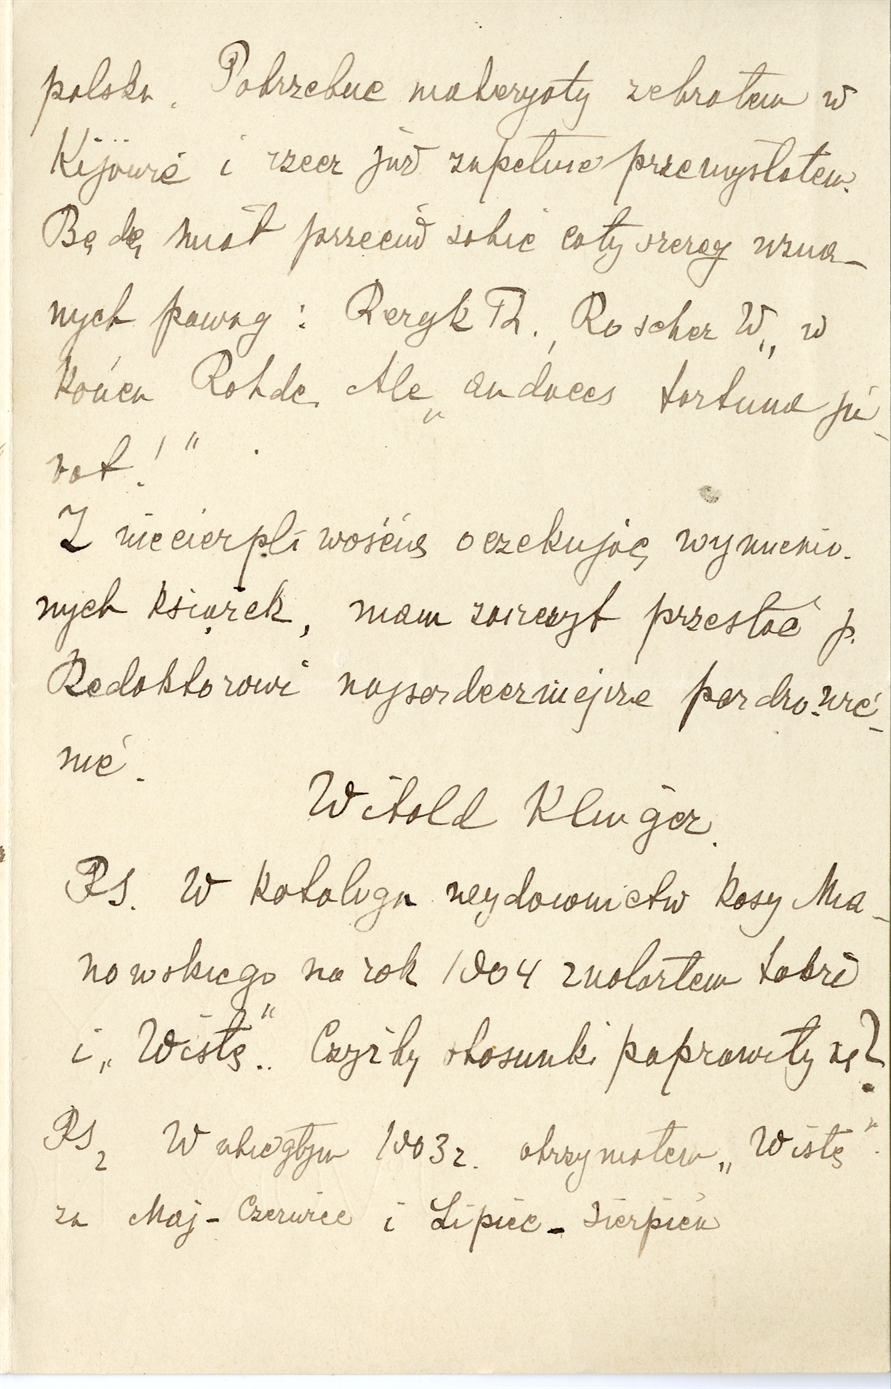 polska. Potrzebne materyały zebrałem w
Kijowie i rzecz już zupełnie przemyślałem.
Będę miał przeciw sobie cały szereg uzna-
nych powag: Bergk Th., Roscher W., w
końcu Rohde. Ale „audaces fortuna ju-
vat!“
Z niecierpliwością oczekując wymienio-
nych książek, mam zaszczyt przesłać p.
Redaktorowi najserdeczniejsze pozdrowie-
nie.
Witold Klinger.
PS. W katalogu wydawnictw Kasy Mia-
nowskiego na rok 1904 znalazłem także
i „Wisłę“. Czyżby stosunki poprawiły się?
PS2 W ubiegłym 1903 r. otrzymałem „Wisłę“
za Maj-Czerwiec i Lipiec-Sierpień